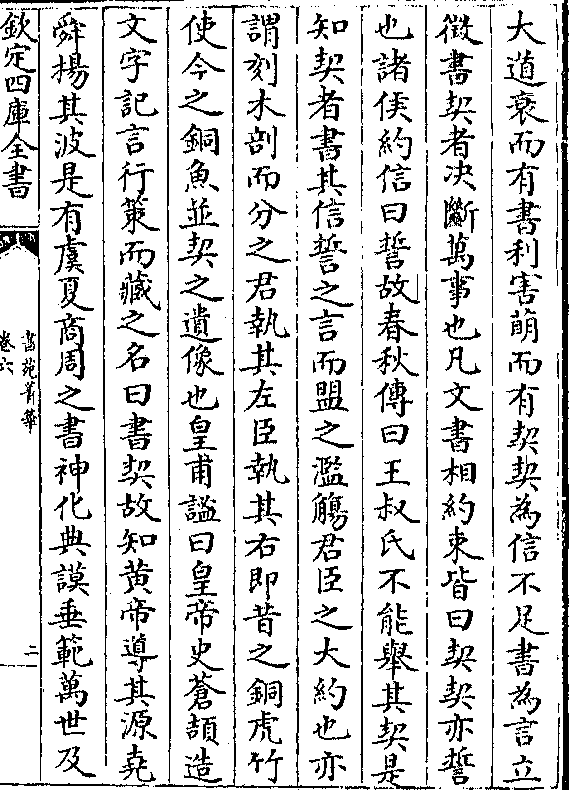 大道衰而有書利害萌而有契契為信不足書為言立
徵書契者決斷萬事也凡文書相約束皆曰契契亦誓
也諸侯約信曰誓故春秋傳曰王叔氏不能舉其契是
知契者書其信誓之言而盟之濫觴君臣之大約也亦
謂刻木剖而分之君執其左臣執其右即昔之銅虎竹
使今之銅魚並契之遺像也皇甫謐曰皇帝史蒼頡造
文字記言行策而藏之名曰書契故知黄帝導其源堯
舜揚其波是有虞夏商周之書神化典謨垂範萬世及
欽定四庫全書
書苑菁華
卷六
二